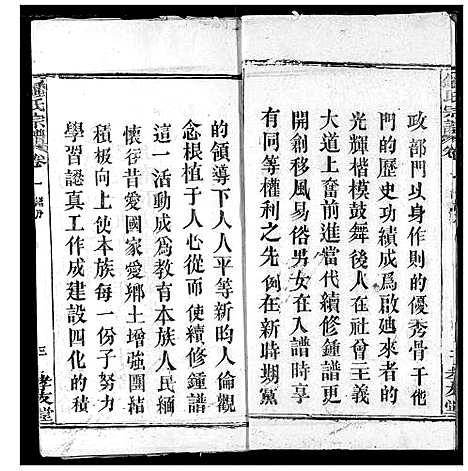 政部門以身作則的優秀骨干他
門的歷史功績成爲啟廸來者的
光輝楷模鼓舞後人在社會主義
大道上奮前進當代續修鍾譜
開創移風易俗男女在新譜時享
有同等權利之先例在新時期黨
的領導下人人平等新的人倫觀
念根植于人心從而使續修鍾譜
這一活動成爲教育本族人民緬
懷往昔愛國家愛鄉土增強團結
積极向上使本族每一份子努力
學習認真工作成建設四化的積
鍾氏宗譜 卷一
三 孝友堂